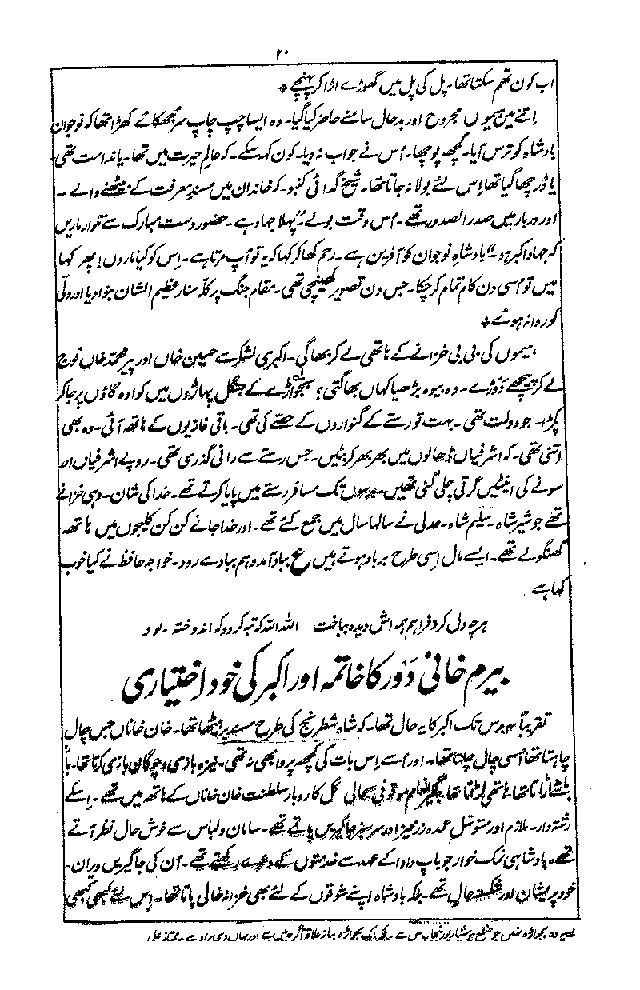 ۲۰
اب کون تھم سکتا تھا۔ پل کی پل میں گھوڑے اڑا کر پہنچے *
اتنے میں ہیموں مجروح اور بدحال سامنے حاضر کیا گیا۔ وہ ایسا چپ چاپ سر جھکائے کھڑا تھا کہ نوجوان
بادشاہ کو ترس آیا۔ کچھ پوچھا۔ اُس نے جواب نہ دیا۔ کون کہہ سکے۔ کہ عالم حیرت میں تھا۔ یا ندامت تھی
یا ڈر چھا گیا تھا اِس لئے بولا نہ جاتا تھا۔ شیخ گدائی کنبو۔ کہ خاندان میں مسندِ معرفت کے بیٹھنے والے۔
اور دربار میں صدر الصدور تھے۔ اُس وقت بولے ”پہلا جہاد ہے۔ حضور دست مبارک سے تلوار ماریں
کہ جہادِ اکبر ہو“ بادشاہِ نوجوان کو آفرین ہے۔ رحم کھا کر کہا کہ یہ تو آپ مرتا ہے۔ اِس کو کیا ماروں! پھر کہا
میں تو اُسی دن کام تمام کر چکا۔ جس دن تصویر کھینچی تھی۔ مقام جنگ پر کلہ منار عظیم الشان بنوا دیا اور دلّی
کو روانہ ہوئے *
ہیموں کی بی بی خزانے کے ہاتھی لے کر بھاگی۔ اکبری لشکر سے حسین خاں اور پیر محمد خاں فوج
لے کر پیچھے دوڑے۔ وہ بیوہ بڑھیا کہاں بھاگتی؟ بجواڑے کے جنگل پہاڑوں میں کوادہ گاؤں پر جا کر
پکڑا۔ جو دولت تھی۔ بہت تو رستے کے گنواروں کے حصّے کی تھی۔ باقی غازیوں کے ہاتھ آئی۔ وہ بھی
اتنی تھی۔ کہ اشرفیاں ڈھالوں میں بھر بھر کر بٹیں۔ جس رستے سے رانی گذری تھی۔ روپے اشرفیاں اور
سونے کی اینٹیں گرتی چلی گئی تھیں۔ برسوں تک مسافر رستے میں پایا کرتے تھے۔ خدا کی شان۔ وہی خزانے
تھے جو شیر شاہ۔ سلیم شاہ۔ عدلی نے سالہا سال میں جمع کئے تھے۔ اور خدا جانے کن کن کلیجوں میں ہاتھ
گھنگولے تھے۔ ایسے مال اِسی طرح برباد ہوتے ہیں ع بباد آمد و ہم بباد رود۔ خواجہ حافظ نے کیا خوب
کہا ہے
ہر چہ دل کرد فراہم ہمہ اش دیدہ بباخت اللہ اللہ کہ تبہ کرد و کہ اندوختہ بود
بیرم خانی دَور کا خاتمہ اور اکبر کی خود اختیاری
تقریباً برس تک اکبر کا یہ حال تھا۔ کہ شاہِ شطرنج کی طرح مسند پر بیٹھا تھا۔ خان خاناں جس چال
چاہتا تھا اُسی چال چلاتا تھا۔ اور اُسے اِس بات کی کچھ پروا بھی نہ تھی۔ نیزہ بازی و چوگان بازی کرتا تھا۔ باز
اڑاتا تھا۔ ہاتھی لڑاتا تھا۔ موقوفی بحالی کل کاروبار سلطنت خان خاناں کے ہاتھ میں تھے۔ اسکے
رشتہ دار۔ ملازم اور متوسل عمدہ زرخیز اور سرسبز جاگیریں پاتے تھے۔ سامان و لباس سے خوش حال نظر آتے
تھے۔ بادشاہی نمک خوار جو باپ دادا کے عہد سے خدمتوں کے دعوے رکھتے تھے۔ اُن کی جاگیریں ویران۔
خود پریشان اور شکستہ حال تھے۔ بلکہ بادشاہ اپنے شوقوں کے لئے بھی خزانہ خالی پاتا تھا۔ اِس لئے کبھی کبھی